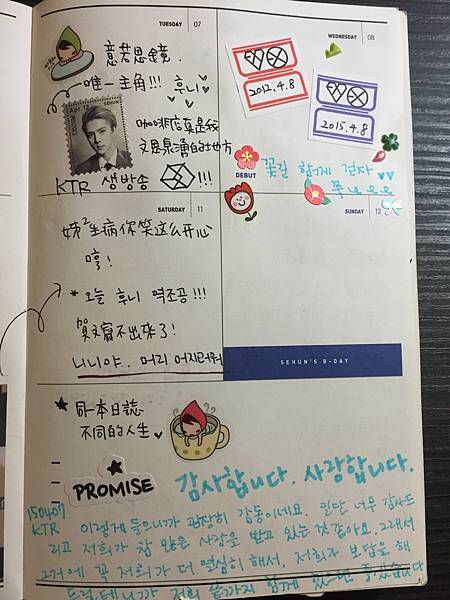 TUESDAY 07
意若思鏡.
唯一主角!!! 후니
Apr. 12
SEHUN
咖啡店真是我
文思泉湧的地方
KTR 생방송 EXO !!!
WEDNESDAY 08
EXO
2012.4.8
EXO
2015.4.8
DEBUT
꽃길 함께 걷자
쭉
SATURDAY 11
姊²生病你笑这么开心
哼!
* 오늘 후니 역조공!!!
賀文寫不出來了!
니니야.. 머리 어지러워
SUNDAY 12
SEHUN'S B-DAY
★ 同一本日誌
不同的人生
PROMISE
감사합니다. 사랑합니다.
150407
KTR
이렇게 들으니까 굉장히 감동이네요. 일단 너무 감사드
리고 저희가 참 많은 사랑을 받고 있는 것 같아요. 그래서
그거에 꼭 저희가 더 열심히 해서, 저희가 보답을 해
드릴테니까 저희 끝까지 함께 있으면 좋겠습니다